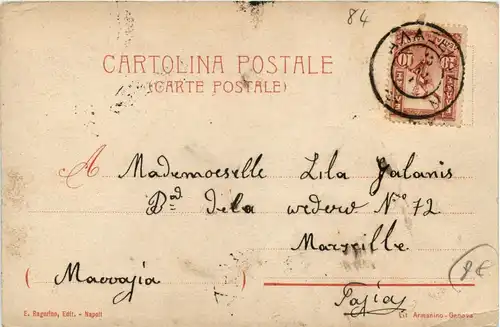 84
CARTOLINA POSTALE
(CARTE POSTALE)
A Mademoeselle Lila Galanis
Bᵈ dela N° 72
Marseille
( )
E. Ragozino, Edit. - Napoli
Lit Armanino-Genova